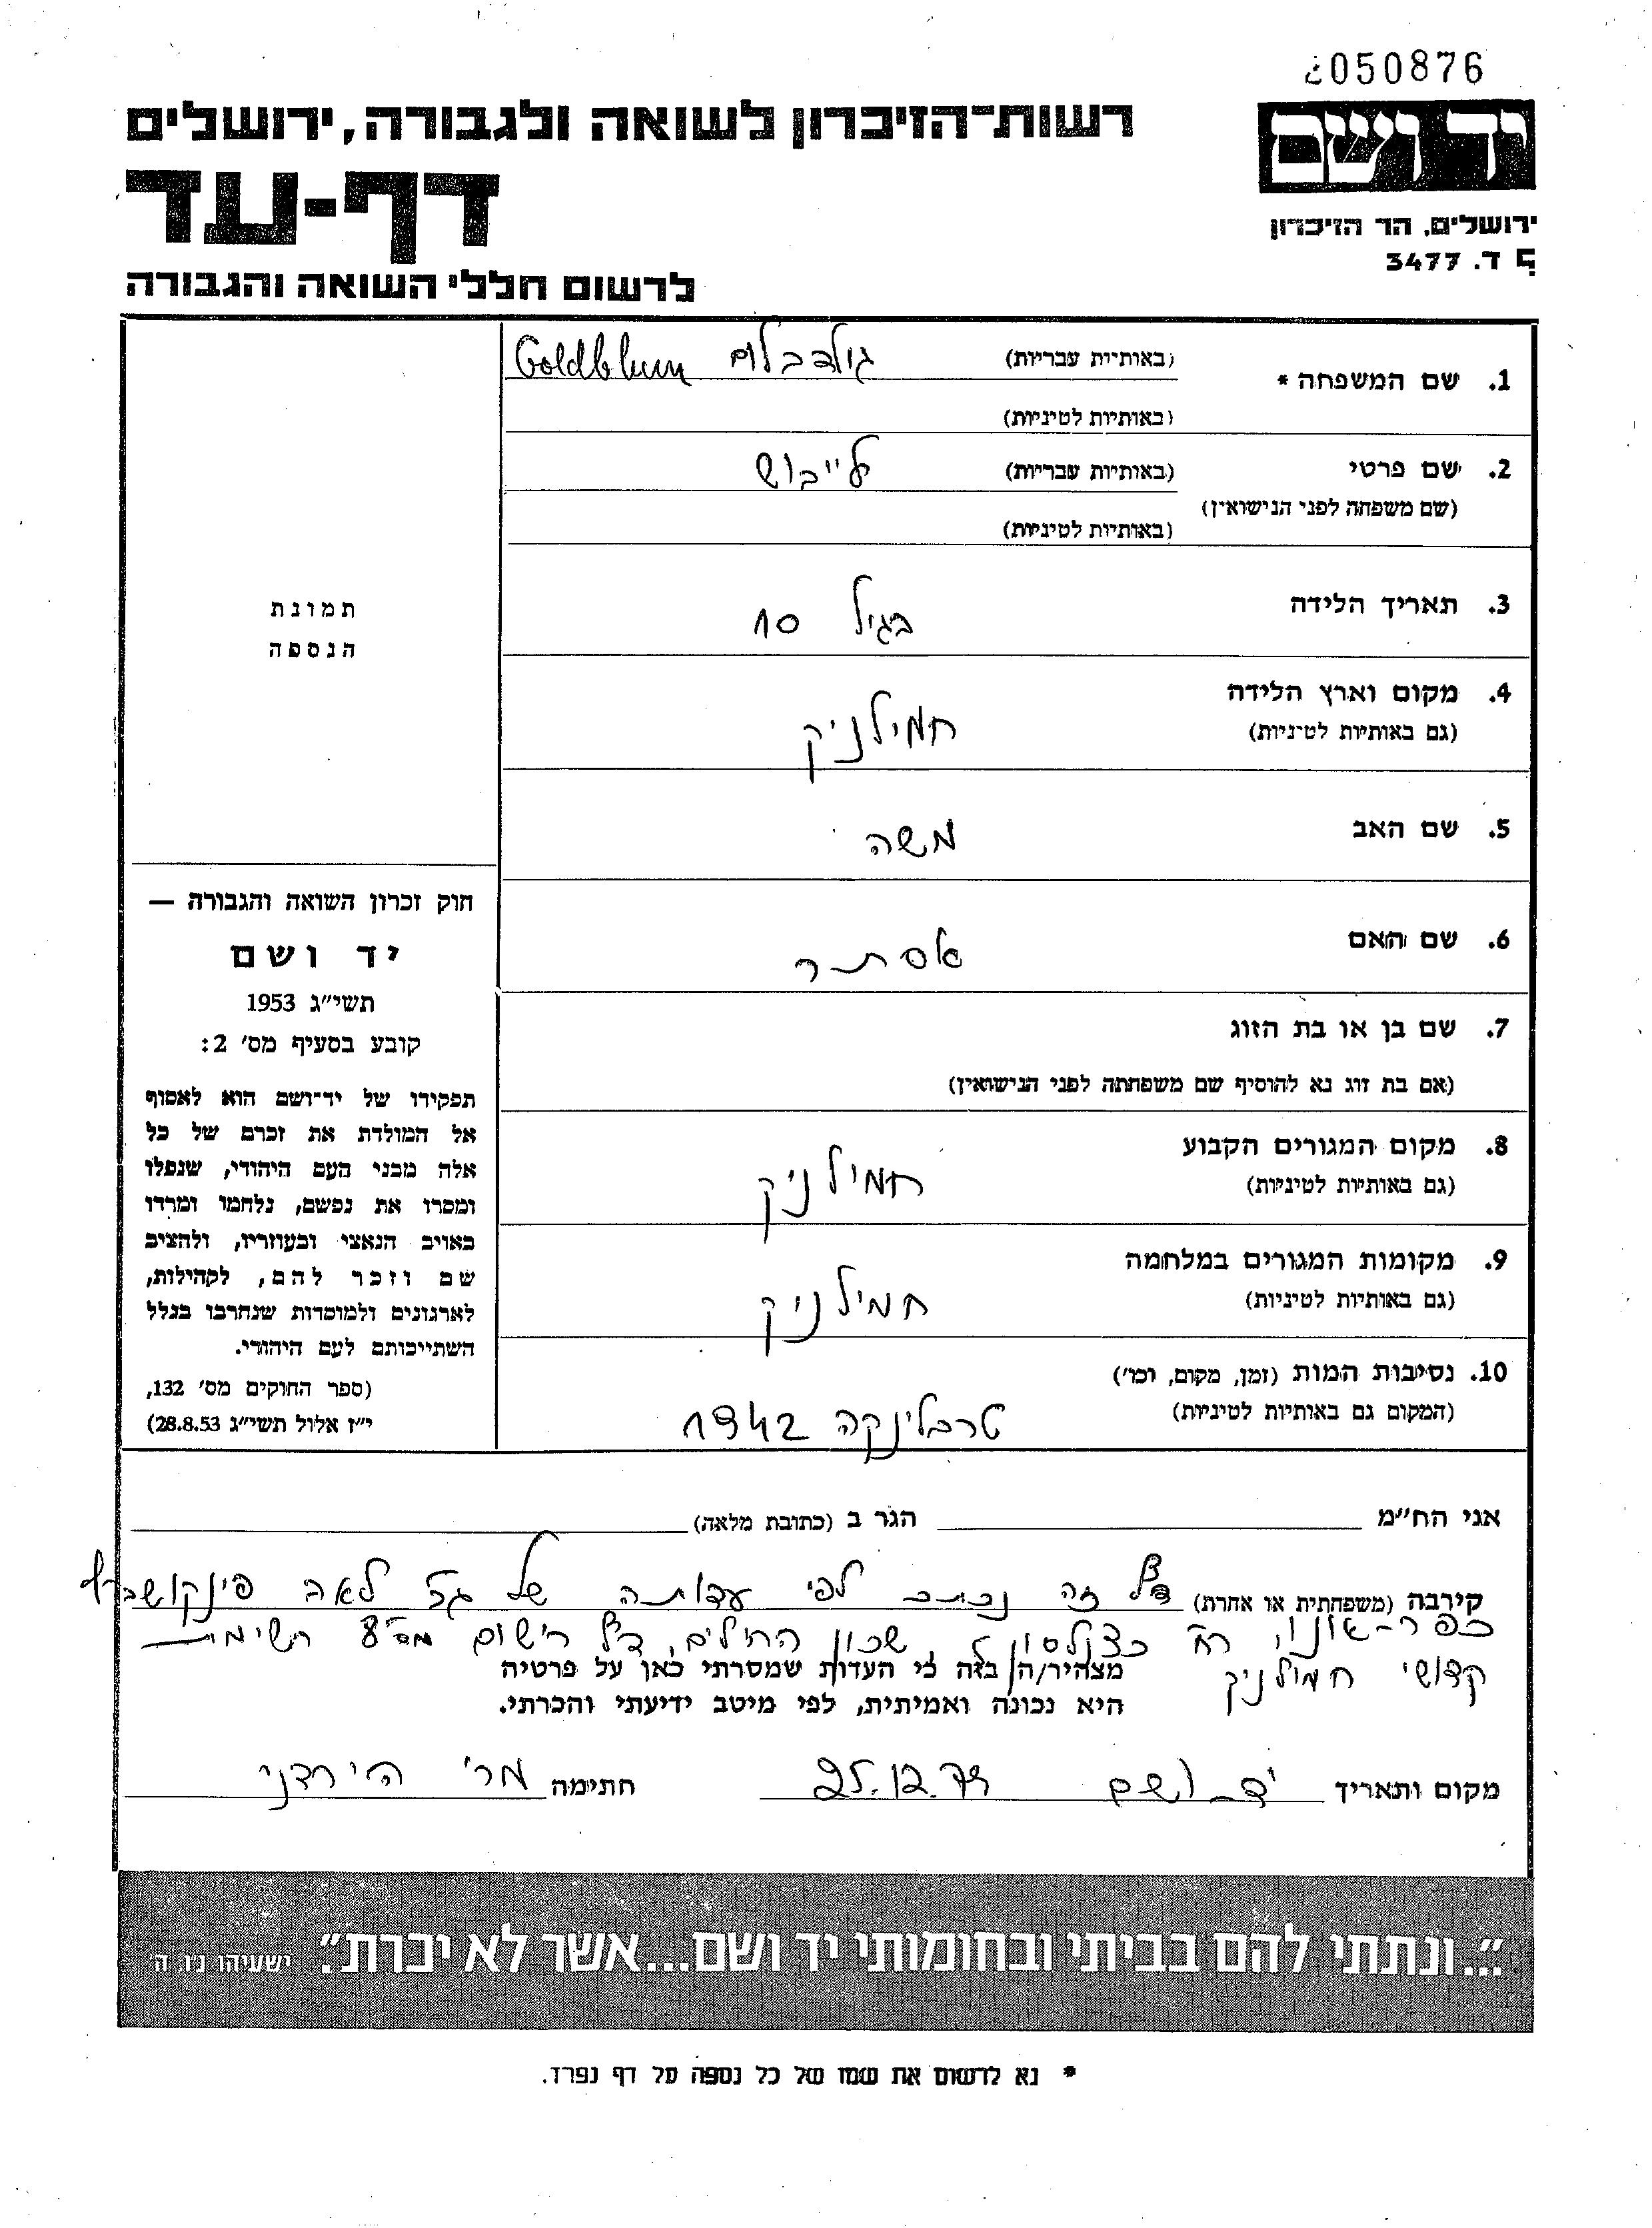 050876
יד ושם
רשות־הזיכרון לשואה ולגבורה, ירושלים
ירושלים, הר הזיכרון
ת ד. 3477
דף-עד
לרשום חללי השואה והגבורה
1. שם המשפחה * (באותיות עבריות) גולדבלום Goldblum
(באותיות לטיניות)
2. שם פרטי (באותיות עבריות) לייבוש
(שם משפחה לפני הנישואין)
(באותיות לטיניות)
3. תאריך הלידה בגיל 10
4. מקום וארץ הלידה
(גם באותיות לטיניות) חמילניק
5. שם האב משה
6. שם האם אסתר
7. שם בן או בת הזוג
(אם בת זוג נא להוסיף שם משפחתה לפני הנישואין)
8. מקום המגורים הקבוע
(גם באותיות לטיניות) חמילניק
9. מקומות המגורים במלחמה
(גם באותיות לטיניות) חמילניק
10. נסיבות המות (זמן, מקום, וכו')
(המקום גם באותיות לטיניות) טרבלינקה 1942
תמונת
הנספה
חוק זכרון השואה והגבורה —
יד ושם
תשי"ג 1953
קובע בסעיף מס' 2:
תפקידו של יד־ושם הוא לאסוף
אל המולדת את זכרם של כל
אלה מבני העם היהודי, שנפלו
ומסרו את נפשם, נלחמו ומרדו
באויב הנאצי ובעוזריו, ולהציב
שם וזכר להם, לקהילות,
לארגונים ולמוסדות שנחרבו בגלל
השתייכותם לעם היהודי.
(ספר החוקים מס' 132,
י"ז אלול תשי"ג 28.8.53)
אני הח"מ הגר ב (כתובת מלאה)
קירבה (משפחתית או אחרת) ד"ע זה נכתב לפי עדותה של גב' לאה פינקושברוף
כפר-אונו, רח' כצנלסון, שכון החילים, ד"ע רישום מס' רשימת
קדושי חמילניק
מצהיר/ה בזה כי העדות שמסרתי כאן על פרטיה
היא נכונה ואמיתית, לפי מיטב ידיעתי והכרתי.
מקום ותאריך יד-ושם 25.12.79 חתימה מר' הירדני
"...ונתתי להם בביתי ובחומותי יד ושם...אשר לא יכרת". ישעיהו נ"ו, ה'
* נא לרשום את שמו של כל נספה על דף נפרד.